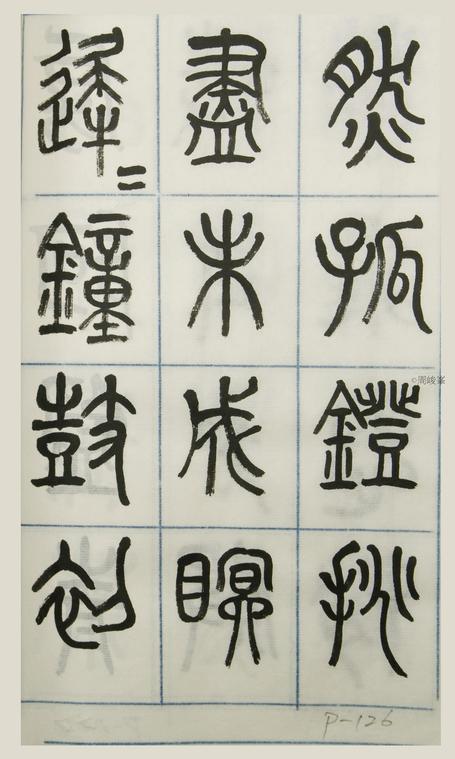 然孤鐙挑
盡未成瞑
遲〻鐘鼓初
©周峻峯
P-126